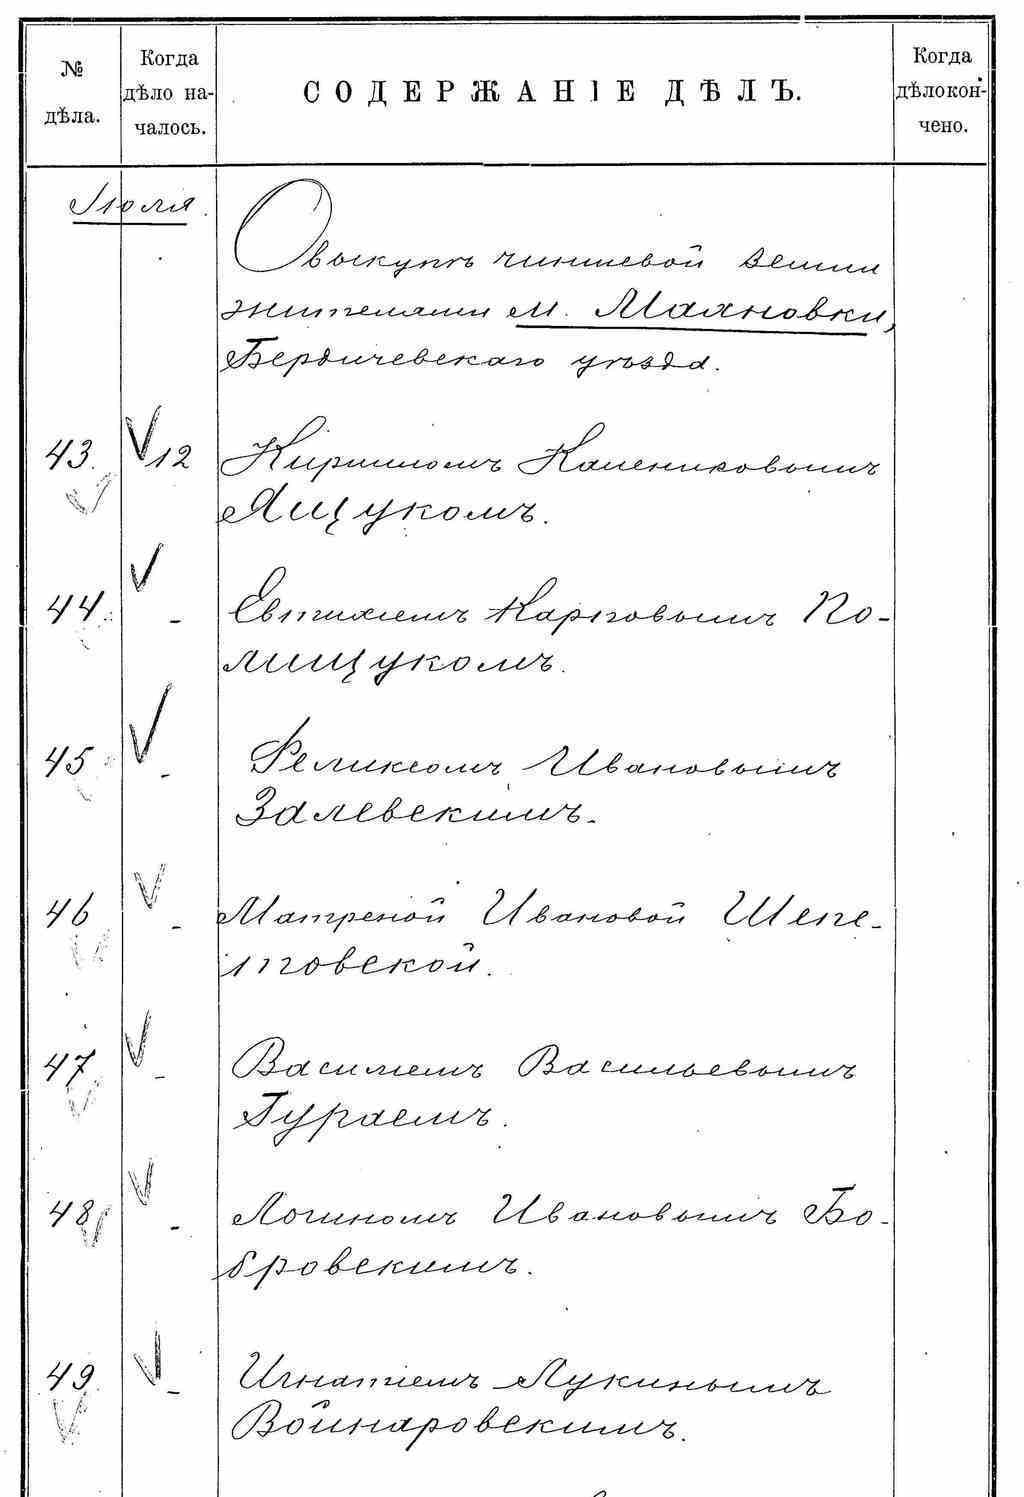 № дѣла.
Когда дѣло на-
чалось.
СОДЕРЖАНІЕ ДѢЛЪ.
Когда дѣло кон-
чено.
Іюля.
О выкупѣ чиншевой земли
жителями м. Махновки,
Бердичевскаго уѣзда.
43. 12 Кирилломъ Калениковымъ
Ящукомъ.
44. - Евтихіемъ Карповымъ По-
лищукомъ.
45 - Феликсомъ Ивановымъ
Залевскимъ.
46 - Матреной Ивановой Шепе-
товской.
47 - Василіемъ Васильевымъ
Гураемъ.
48 - Логиномъ Ивановымъ Бо-
бровскимъ.
49. - Игнатіемъ Лукинымъ
Войнаровскимъ.